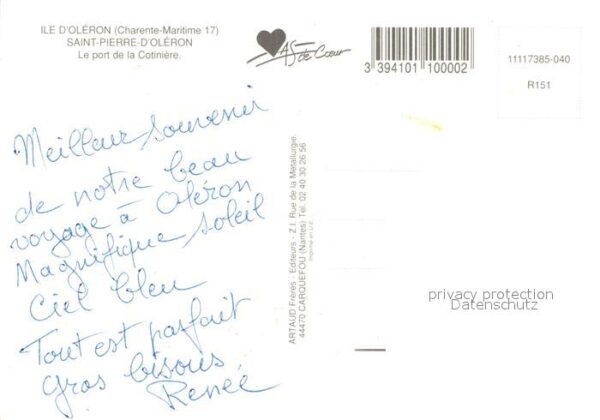 ILE D'OLÉRON (Charente-Maritime 17)
SAINT-PIERRE-D'OLÉRON
Le port de la Cotinière.
AS de Cœur
3 394101 100002
11117385-040
R151
Meilleur souvenir
de notre beau
voyage à Oléron
Magnifique soleil
Ciel bleu
Tout est parfait
gros bisous
Renée
ARTAUD Frères - Editeurs - Z.I. Rue de la Métallurgie.
44470 CARQUEFOU (Nantes) Tél. 02 40 30 26 56
Imprimé en U.E.
privacy protection
Datenschutz